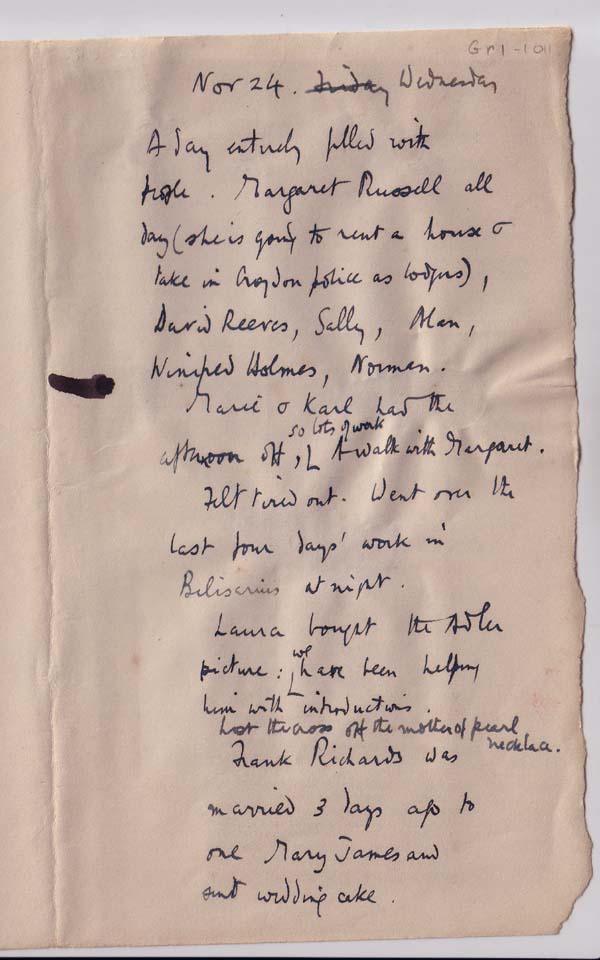 Gr1-101
Nov 24. Friday Wednesday
A day entirely filled with
people. Margaret Russell all
day (she is going to rent a house &
take in Croydon police as lodgers),
David Reeves, Sally, Alan,
Winifred Holmes, Norman.
Marie & Karl had the
so lots of work
afternoon off, A walk with Margaret.
Felt tired out. Went over the
last four days' work in
Belisarius at night.
Laura bought the Adler
we
picture: have been helping
him with introductions.
Lost the cross off the mother of pearl
necklace.
Frank Richards was
married 3 days ago to
one Mary James and
sent wedding cake.